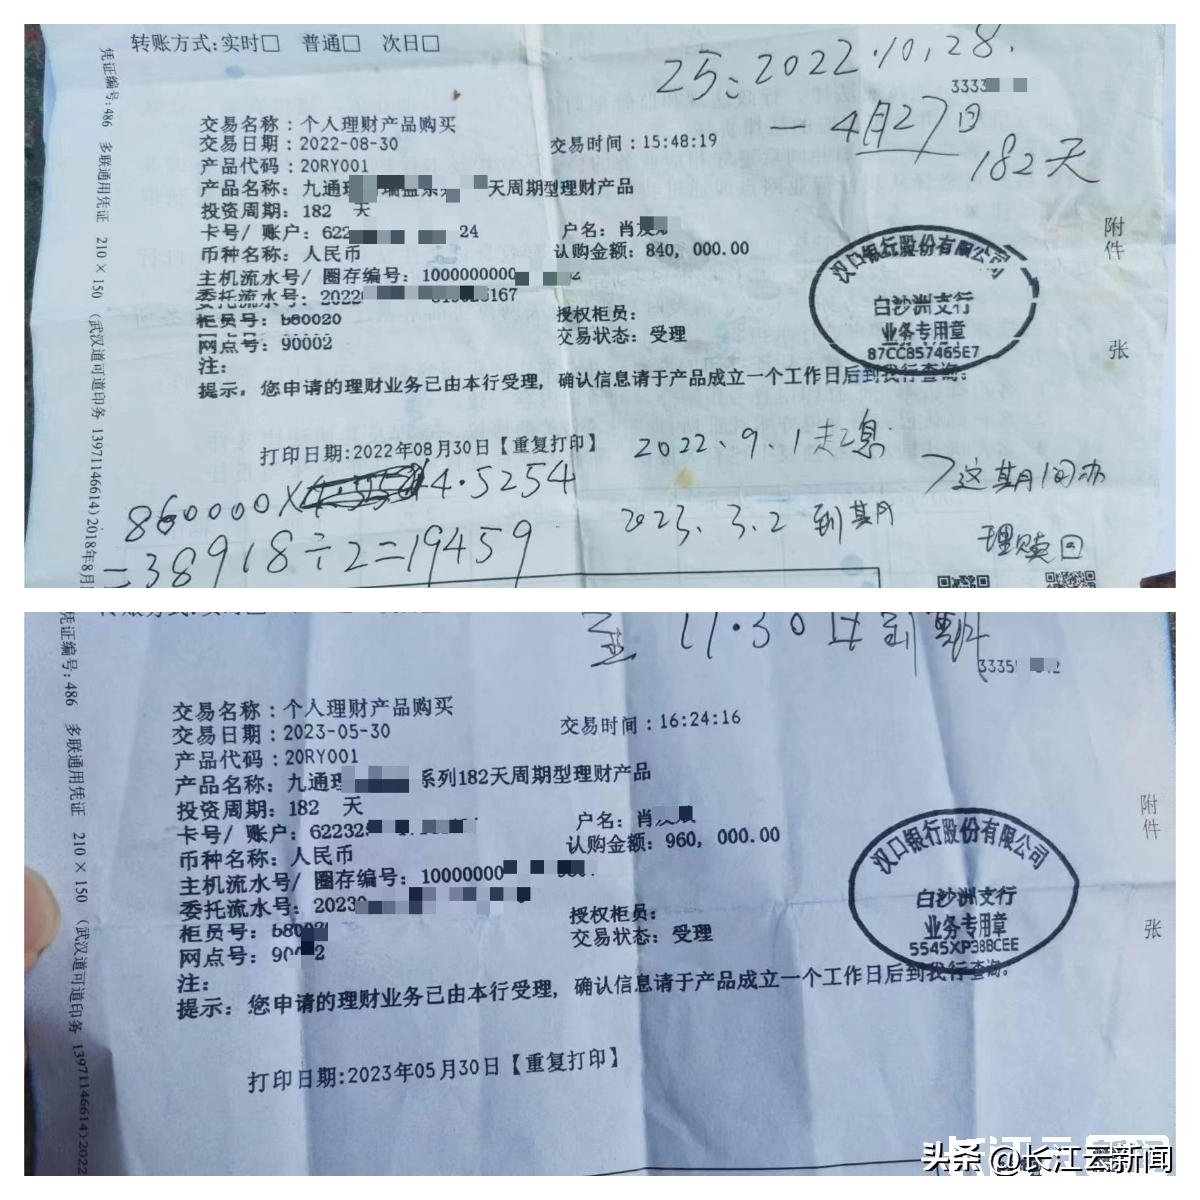 转账方式:实时□ 普通□ 次日□
25、2022.10.28.
3333
4月27日
182天
凭证编号:486 多联通用凭证 210×150 (武汉道可道印务 13971146614)2018年8月
交易名称:个人理财产品购买
交易日期:2022-08-30 交易时间:15:48:19
产品代码:20RY001
产品名称:九通 天周期型理财产品
投资周期:182 天
卡号/账户:622 24 户名:肖
币种名称:人民币 认购金额:840,000.00
主机流水号/圈存编号:1000000000
委托流水号:2022 167
柜员号:b80020 授权柜员:
网点号:90002 交易状态:受理
注:
提示,您申请的理财业务已由本行受理,确认信息请于产品成立一个工作日后到我行查询。
汉口银行股份有限公司
白沙洲支行
业务专用章
87CC857465E7
附件 张
打印日期:2022年08月30日【重复打印】
2022、9、1起息
860000× 4.5254
=38918÷2=19459
2023、3、2到期
这期间办
理赎回
至11.30日到期
3335
凭证编号:486 多联通用凭证 210×150 (武汉道可道印务 13971146614)2022
交易名称:个人理财产品购买
交易日期:2023-05-30 交易时间:16:24:16
产品代码:20RY001
产品名称:九通理 系列182天周期型理财产品
投资周期:182 天
卡号/账户:62232 户名:肖
币种名称:人民币 认购金额:960,000.00
主机流水号/圈存编号:10000000
委托流水号:2023
柜员号:b80 授权柜员:
网点号:90 2 交易状态:受理
注:
提示:您申请的理财业务已由本行受理,确认信息请于产品成立一个工作日后到我行查询。
汉口银行股份有限公司
白沙洲支行
业务专用章
5545XP38BCEE
附件 张
打印日期:2023年05月30日【重复打印】
头条 @长江云新闻